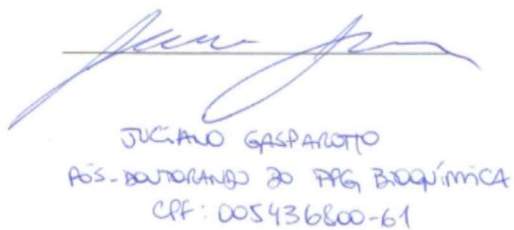 JUCIANO GASPAROTTO
PÓS-DOUTORANDO DO PPG BIOQUÍMICA
CPF: 005436800-61